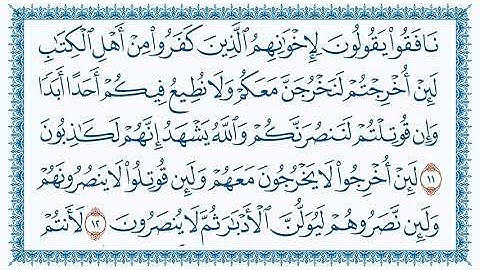 نَافَقُوا۟ يَقُولُونَ لِإِخْوَٰنِهِمُ ٱلَّذِينَ كَفَرُوا۟ مِنْ أَهْلِ ٱلْكِتَٰبِ
لَئِنْ أُخْرِجْتُمْ لَنَخْرُجَنَّ مَعَكُمْ وَلَا نُطِيعُ فِيكُمْ أَحَدًا أَبَدًا
وَإِن قُوتِلْتُمْ لَنَنصُرَنَّكُمْ وَٱللَّهُ يَشْهَدُ إِنَّهُمْ لَكَٰذِبُونَ
١١ لَئِنْ أُخْرِجُوا۟ لَا يَخْرُجُونَ مَعَهُمْ وَلَئِن قُوتِلُوا۟ لَا يَنصُرُونَهُمْ
وَلَئِن نَّصَرُوهُمْ لَيُوَلُّنَّ ٱلْأَدْبَٰرَ ثُمَّ لَا يُنصَرُونَ ١٢ لَأَنتُمْ